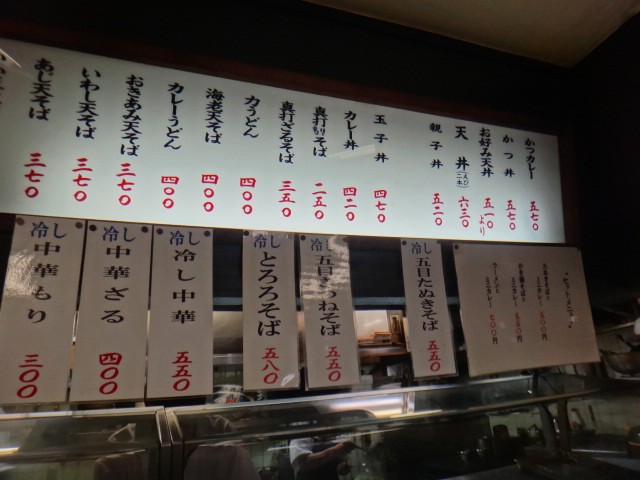 かつカレー 五七〇
かつ丼 五七〇
お好み天丼 五一〇より
天丼(えび二本) 六三〇
親子丼 五二〇
玉子丼 四七〇
カレー丼 四二〇
真打もりそば 二五〇
真打ざるそば 三五〇
力うどん 四〇〇
海老天そば 四〇〇
カレーうどん 四〇〇
おきあみ天そば 三七〇
いわし天そば 三七〇
あじ天そば 三七〇
冷し五目たぬきそば 五五〇
冷し五目きつねそば 五五〇
冷しとろろそば 五八〇
冷し冷し中華 五五〇
冷し中華ざる 四〇〇
冷し中華もり 三〇〇
セットメニュー
ラーメンと
ミニカレー 七〇〇円